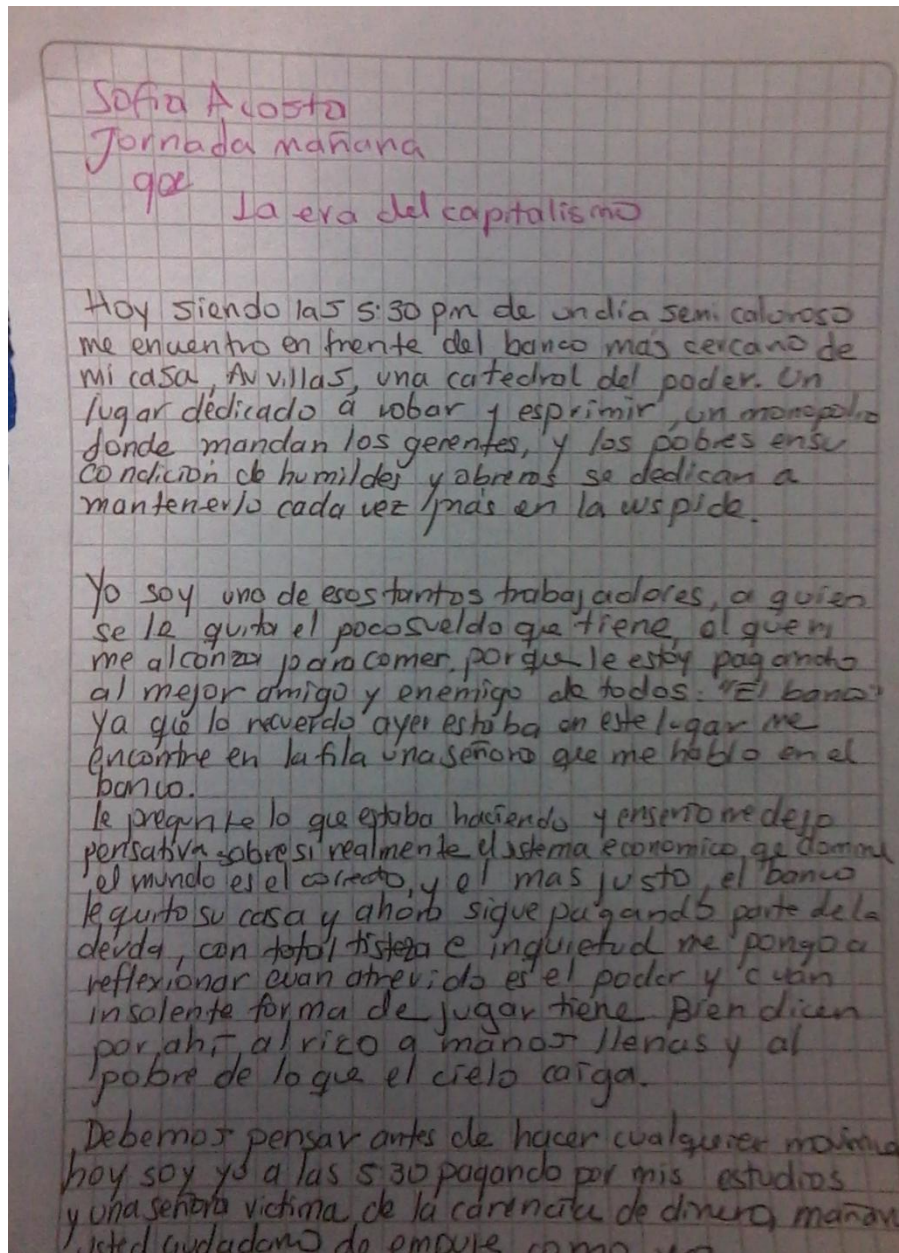 Sofia Acosta
Jornada mañana
902
La era del capitalismo
Hoy siendo las 5:30 pm de un día semi caluroso
me encuentro en frente del banco más cercano de
mi casa, Av villas, una catedral del poder. Un
lugar dedicado a robar y esprimir, un monopolio
donde mandan los gerentes, y los pobres en su
condición de humildes y obreros se dedican a
mantenerlo cada vez más en la cuspide.
Yo soy uno de esos tantos trabajadores, a quien
se le quita el poco sueldo que tiene, al que ni
me alcanza para comer, porque le estoy pagando
al mejor amigo y enemigo de todos: "El banco"
ya que lo recuerdo ayer estaba en este lugar me
encontre en la fila una señora que me hablo en el
banco.
le pregunte lo que estaba haciendo y enserio me dejo
pensativa sobre si realmente el sistema economico, qe domina
el mundo es el correcto, y el mas justo, el banco
le quito su casa y ahora sigue pagando parte de la
deuda, con total tisteza e inquietud me pongo a
reflexionar cuan atrevido es el poder y cuán
insolente forma de jugar tiene Bien dicen
por ahí, al rico a manos llenas y al
pobre de lo que el cielo caiga.
Debemos pensar antes de hacer cualquier
hoy soy yo a las 5:30 pagando por mis estudios
y una señora victima de la carencia de dinero, mañan
usted ciudadano como